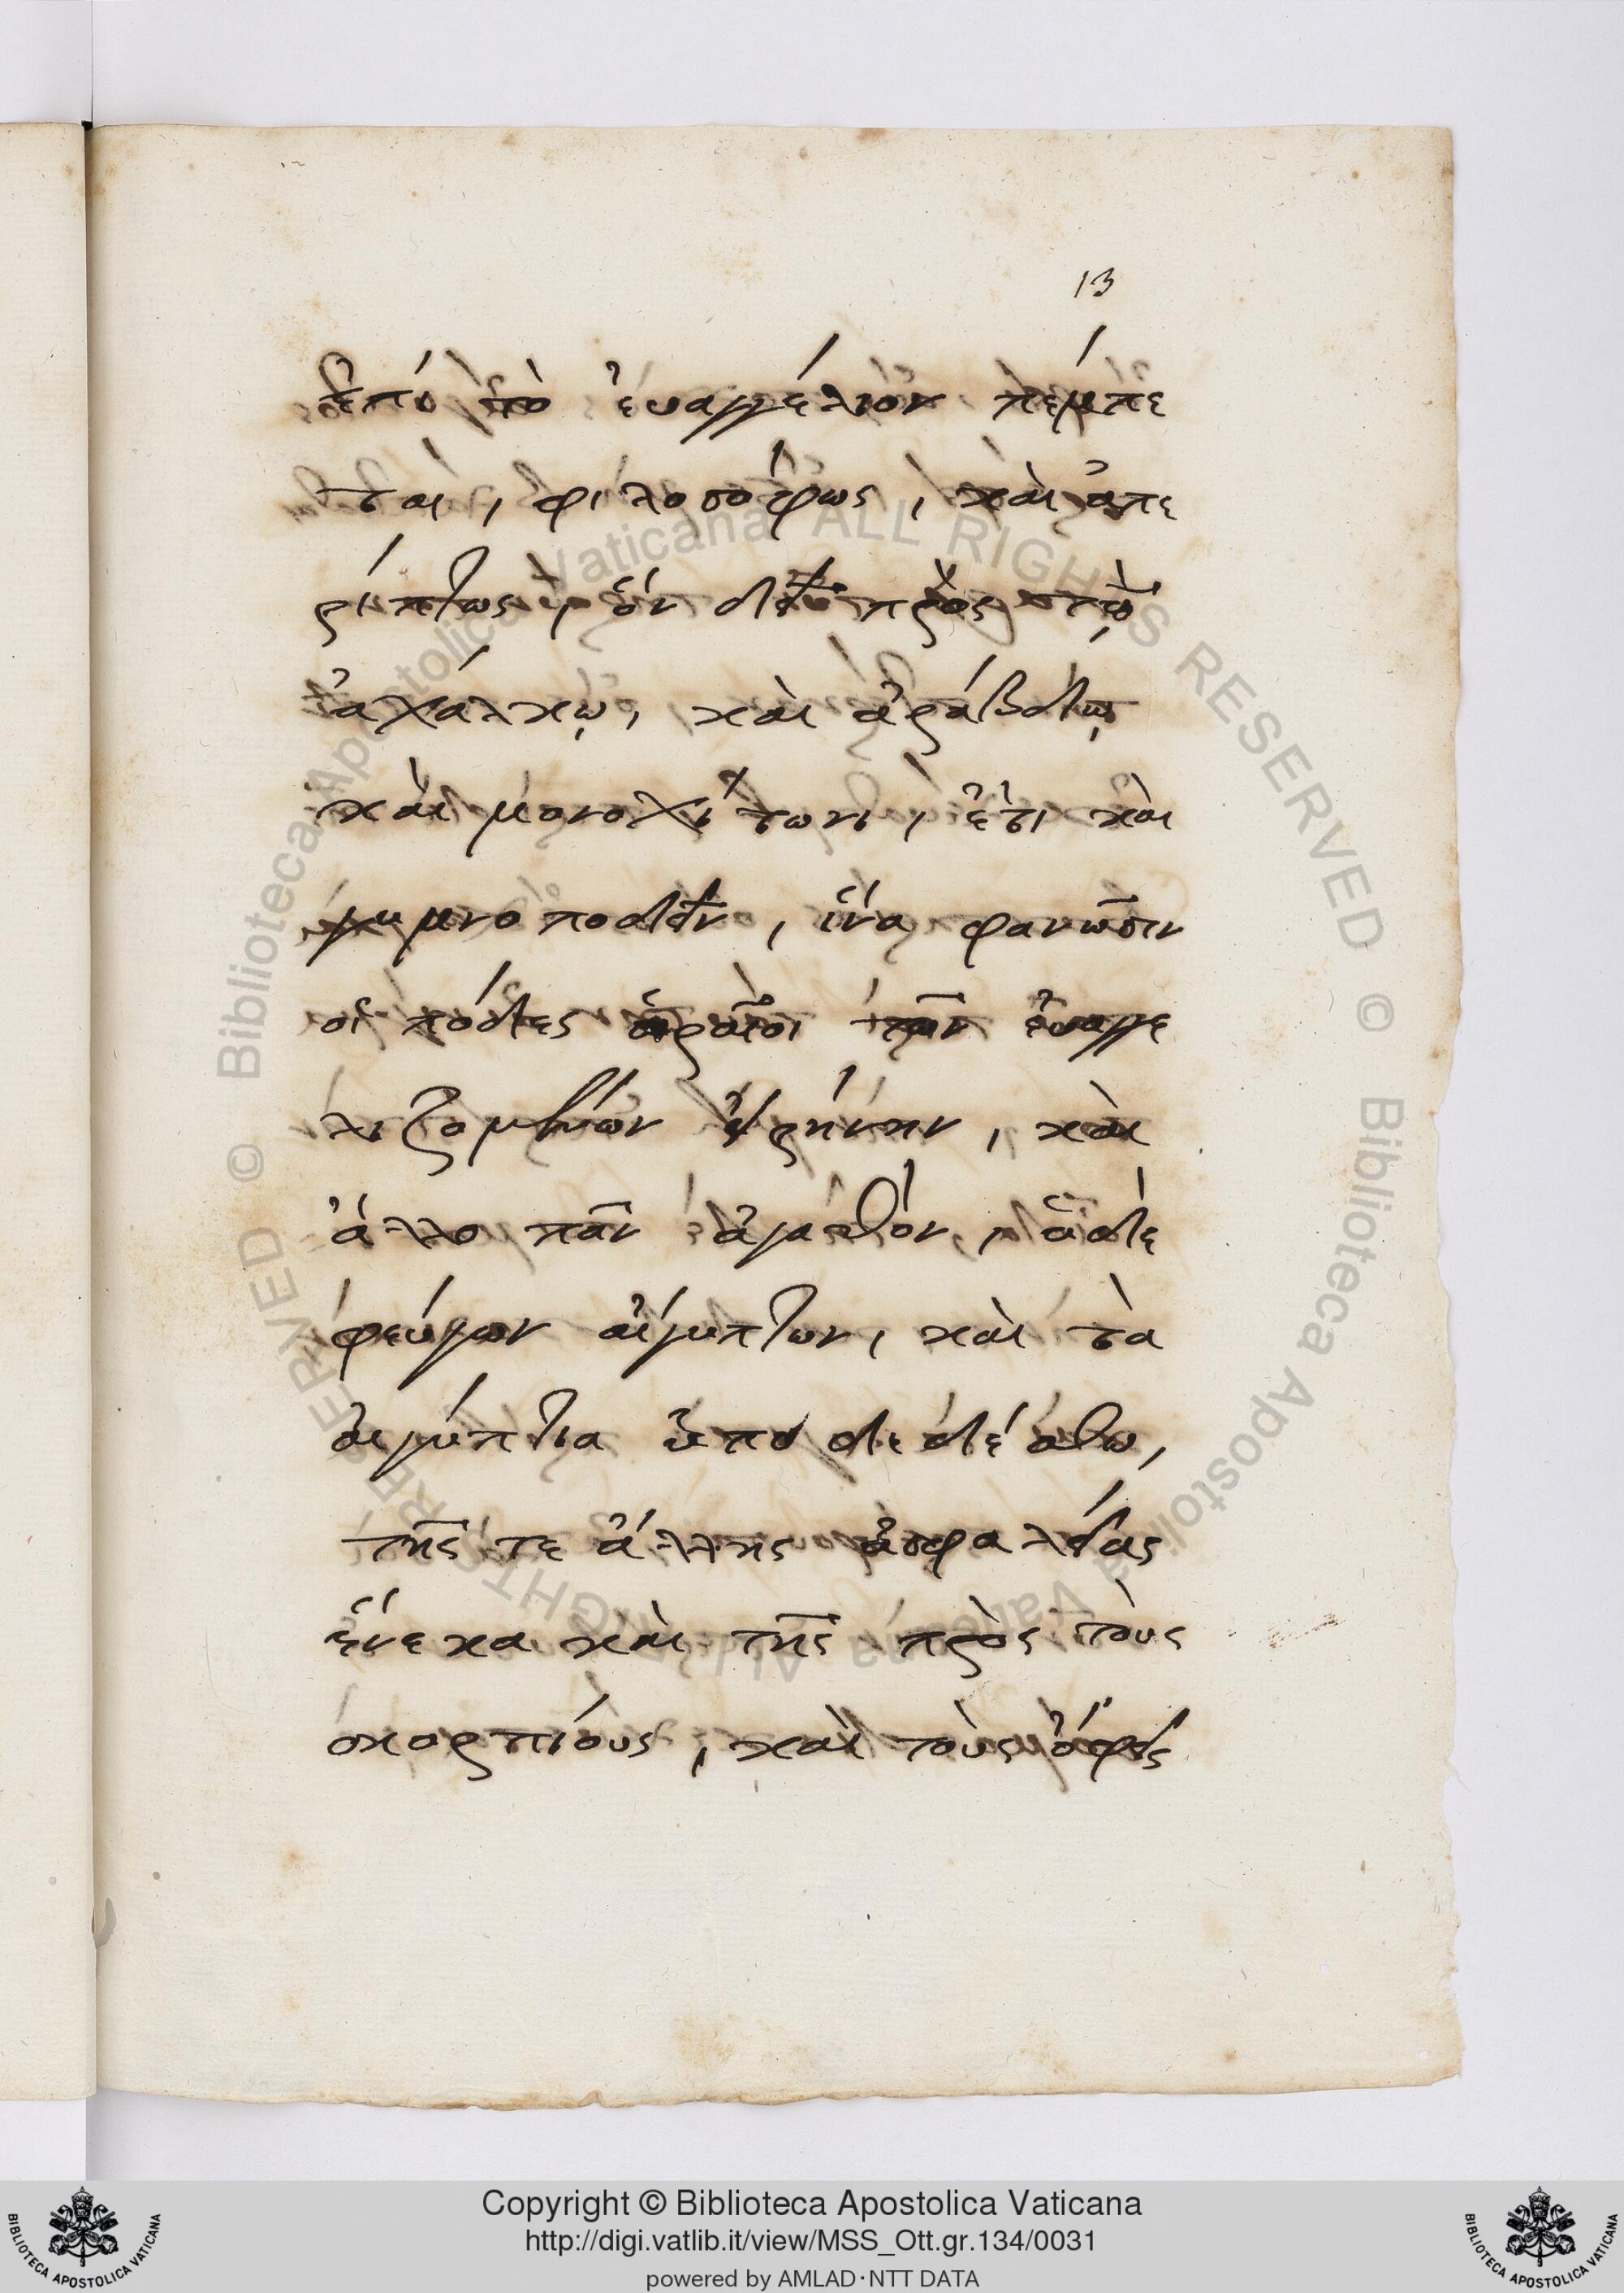 13
ἐπὶ τὸ ἐυαγγέλιον πέμπε
ται, φιλοσόφως, καὶ ἀπε
ρίττως, ὃν δεῖ πρὸς τῷ
ἀχάλκῳ, καὶ ἀράβδῳ
καὶ μονοχίτωνι, ἔτι καὶ
γυμνοποδεῖν, ἵνα φανῶσιν
οἱ πόδες ὡραῖοι τῶν ἐυαγγε
λιζομένων εἰρήνην, καὶ
ἄλλο πᾶν ἀγαθόν, ὁ δὲ
φεύγων αἴγυπτον, καὶ τὰ
αἰγύπτια ὑποδεδέσθω,
τῆς τε ἄλλης ἀσφαλείας
ἕνεκα καὶ τῆς πρὸς τοὺς
σκορπίους, καὶ τοὺς ὄφεις
Copyright © Biblioteca Apostolica Vaticana
http://digi.vatlib.it/view/MSS_Ott.gr.134/0031
powered by AMLAD·NTT DATA
© Biblioteca Apostolica Vaticana ALL RIGHTS RESERVED
© Biblioteca Apostolica Vaticana ALL RIGHTS RESERVED
BIBLIOTECA APOSTOLICA VATICANA
BIBLIOTECA APOSTOLICA VATICANA